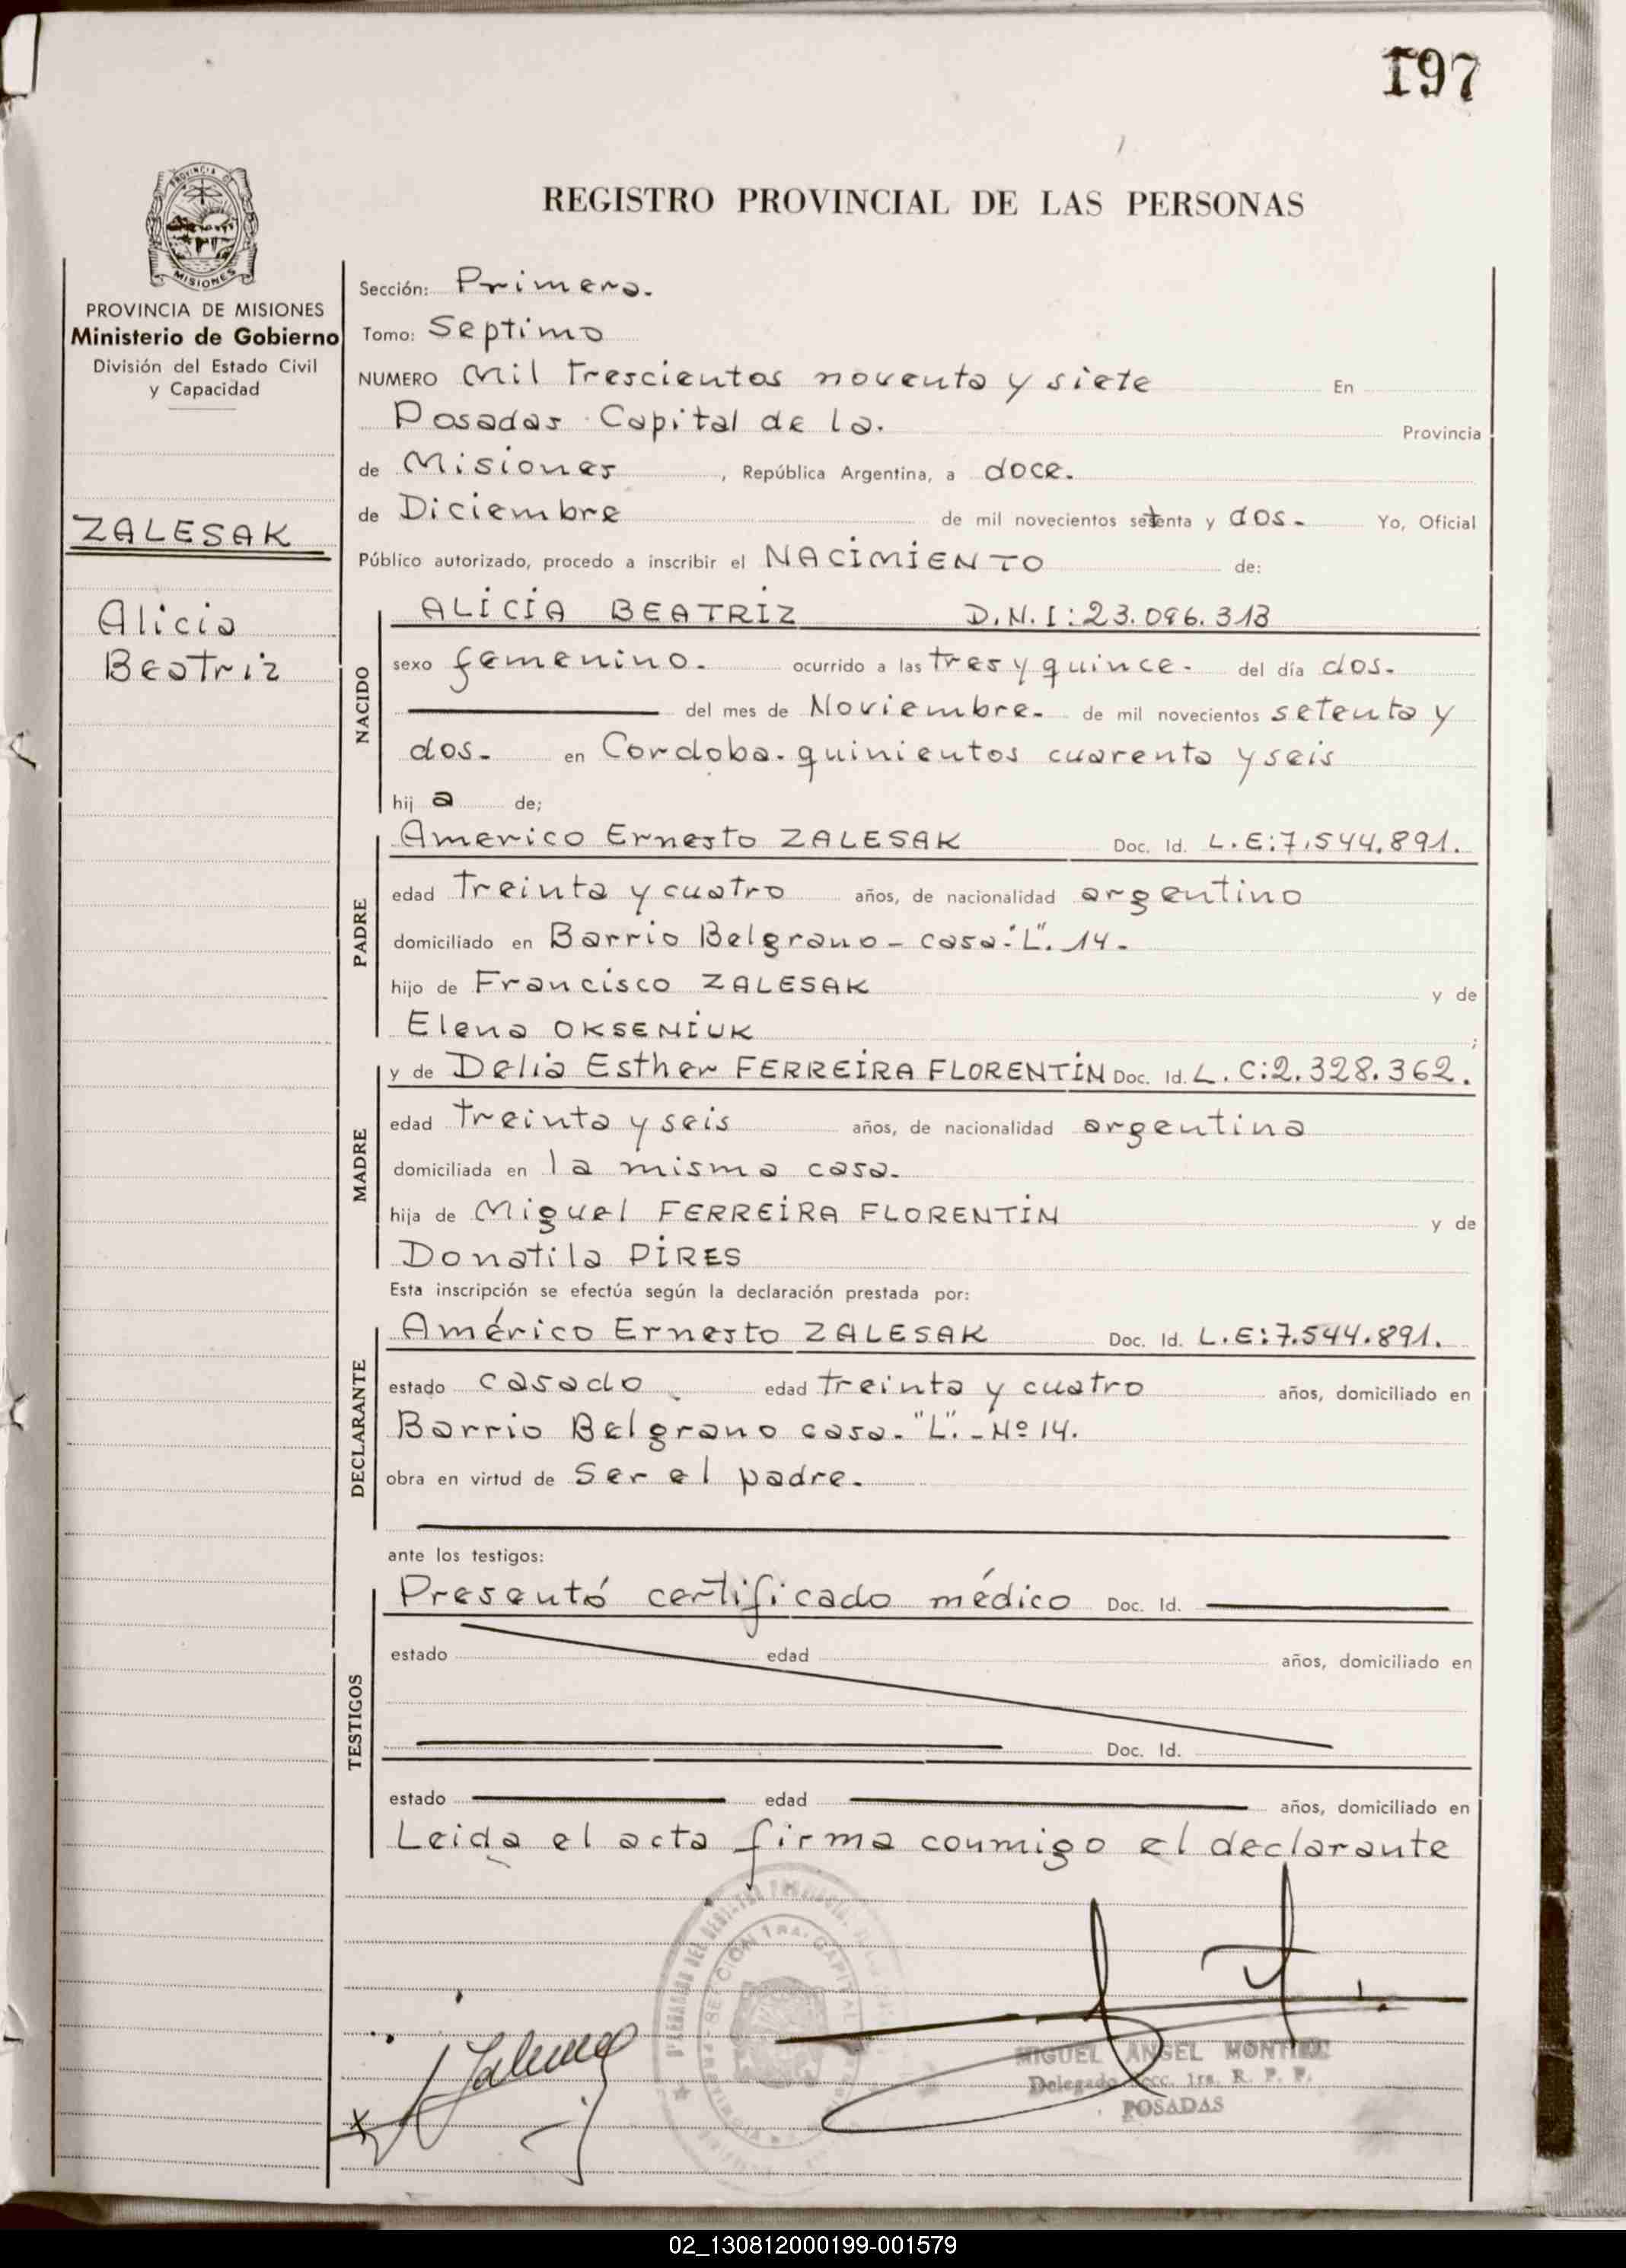 197
REGISTRO PROVINCIAL DE LAS PERSONAS
PROVINCIA DE MISIONES
Ministerio de Gobierno
División del Estado Civil
y Capacidad
ZALESAK
Alicia
Beatriz
Sección: Primera.
Tomo: Septimo
NUMERO Mil Trescientos noventa y siete En
Posadas Capital de la. Provincia
de Misiones, República Argentina, a doce.
de Diciembre de mil novecientos setenta y dos. Yo, Oficial
Público autorizado, procedo a inscribir el NACIMIENTO de:
NACIDO
ALICIA BEATRIZ D.N.I: 23.096.313
sexo femenino. ocurrido a las tres y quince. del día dos.
del mes de Noviembre. de mil novecientos setenta y
dos. en Cordoba. quinientos cuarenta y seis
hij a de;
PADRE
Americo Ernesto ZALESAK Doc. Id. L.E: 7.544.891.
edad Treinta y cuatro años, de nacionalidad argentino
domiciliado en Barrio Belgrano - casa. "L". 14.
hijo de Francisco ZALESAK y de
Elena OKSENIUK ;
MADRE
y de Delia Esther FERREIRA FLORENTIN Doc. Id. L.C: 2.328.362.
edad Treinta y seis años, de nacionalidad argentina
domiciliada en la misma casa.
hija de Miguel FERREIRA FLORENTIN y de
Donatila PIRES
Esta inscripción se efectúa según la declaración prestada por:
DECLARANTE
Américo Ernesto ZALESAK Doc. Id. L.E: 7.544.891.
estado casado edad treinta y cuatro años, domiciliado en
Barrio Belgrano casa. "L". - Nº 14.
obra en virtud de Ser el padre.
ante los testigos:
TESTIGOS
Presentó certificado médico Doc. Id.
estado edad años, domiciliado en
Doc. Id.
estado edad años, domiciliado en
Leida el acta firma conmigo el declarante
MIGUEL ANGEL MONTIEL
Delegado Secc. 1ra. R. P. P.
POSADAS
02_130812000199-001579